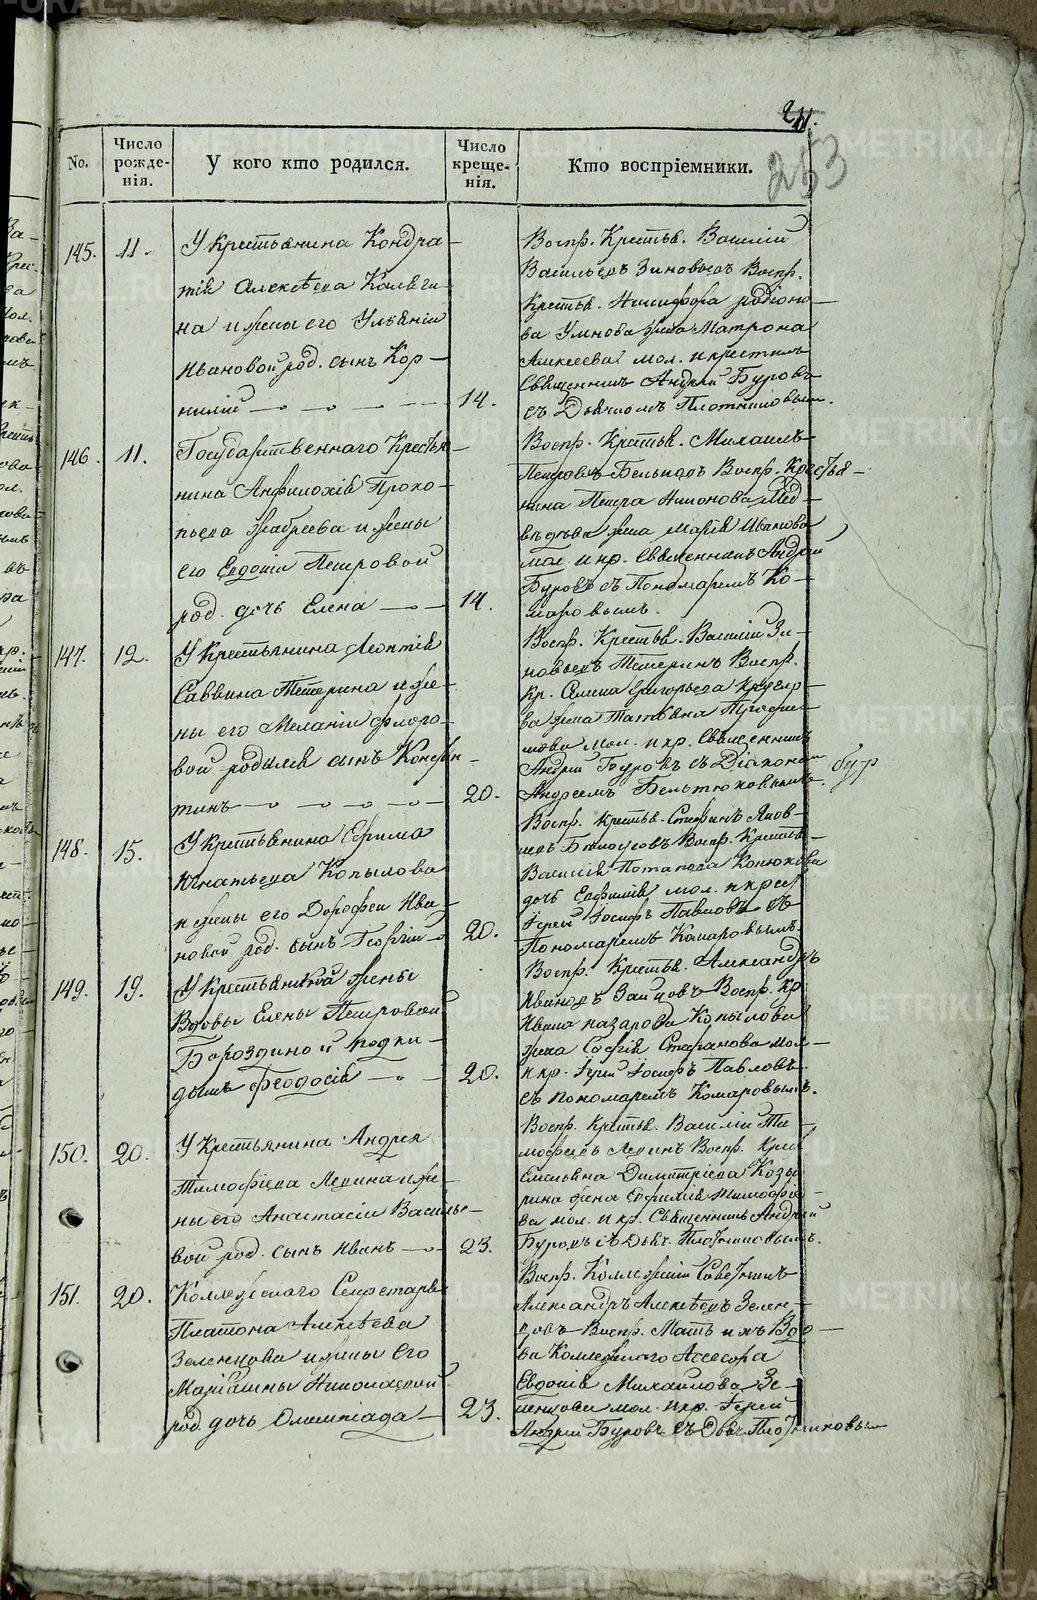 METRIKI.GASO-URAL.RU
211.
253
No.
Число рожде-нія.
У кого кто родился.
Число креще-нія.
Кто воспріемники.
145. 11.
У Крестьянина Кондра-
тія Алексѣева Калаги-
на и жены его Ульяніи
Ивановой род. сынъ Кор-
нилій
14.
Воспр. Крестья. Василій
Васильевъ Зиновьевъ Воспр.
Крестья. Никифора Родіоно-
ва Умнова жена Матрона
Алексеева мол. и крестилъ
Священникъ Андрей Буровъ
съ Дьячкомъ Плотниковым.
146. 11.
Государственнаго Крестья-
нина Анфилохія Проко-
пьева Жабреева и жены
его Евдокіи Петровой
род. дочь Елена
14.
Воспр. Крестья. Михаилъ
Петровъ Бельковъ Воспр. Крестья-
нина Петра Никонова Мед-
вѣдева жена Марія Иванова
мол. и кр. Священникъ Андрей
Буровъ съ Пономаремъ Ко-
маровымъ.
147. 12.
У Крестьянина Леонтія
Саввина Тетерина и же-
ны его Меланіи Флоро-
вой родился сынъ Констан-
тинъ
20.
Воспр. Крестья. Василій Зи-
новьевъ Тетеринъ Воспр.
кр. Григорьева
ва жена Татьяна Трофи-
мова мол. и кр. Священникъ
Андрей Буровъ съ Діакономъ
Андреемъ Бельтюковымъ.
бур
148. 15.
У крестьянина Ефима
Игнатьева Копылова
и жены его Дорофеи Ива-
новой род. сынъ Георгій
20.
Воспр. Крестья. Стефанъ Яков-
левъ Белоусовъ Воспр. Крестья-
Василія Потапова Конюхова
дочь Евфимія мол. и крест.
Іерей Іосифъ Павловъ съ
Пономаремъ Комаровымъ.
149. 19.
У Крестьянской жены
Вдовы Елены Петровой
Бороздиной подки-
дышъ Феодосія
20.
Воспр. Крестья. Александръ
Ивановъ Зайцовъ Воспр. кр.
Ивана Назарова Копылова
жена Софія Стефанова мол-
и кр. Іерей Іосифъ Павловъ
съ пономаремъ Комаровымъ.
150. 20.
У Крестьянина Андрея
Тимофѣева Лепина и же-
ны его Анастасіи Василье-
вой род. сынъ Иванъ
23.
Воспр. Крестья. Василій Ти-
мофѣевъ Лепинъ Воспр. Крес
Емельяна Димитріева Козы
рина жена Евфимія Тимофѣе-
ва мол. и кр. Священникъ Андрей
Буровъ съ Дьяч. Плотниковымъ.
151. 20.
Коллежскаго Секретаря
Платона Алексѣева
Зеленцова и жены Его
Маріамны Николаевой
род. дочь Олимпіада
23.
Воспр. Коллежскій Советникъ
Александръ Алексѣевъ Зелен-
цовъ Воспр. Мать ихъ Вдо-
ва Коллежскаго Ассесора
Евдокія Михайлова Зе-
ленцова мол. и кр. Іерей
Андрей Буровъ съ Дьяч. Плотниковым